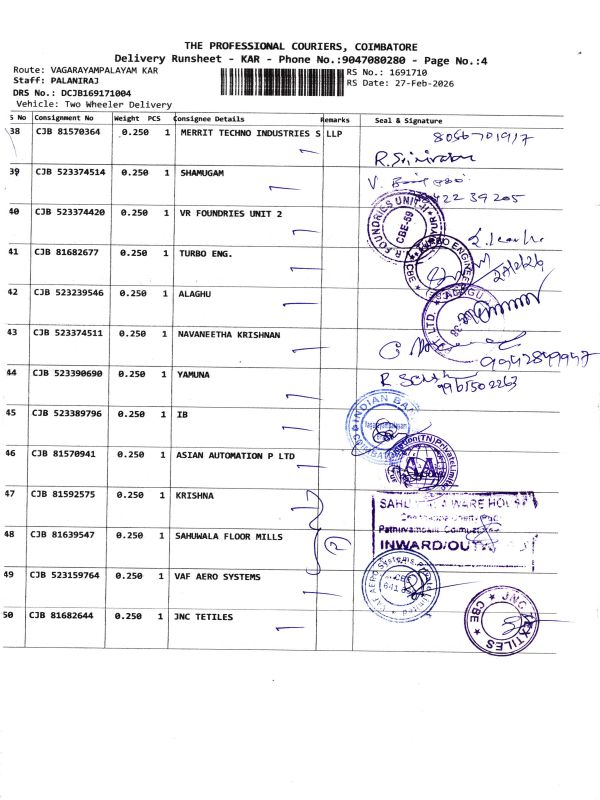 THE PROFESSIONAL COURIERS, COIMBATORE
Delivery Runsheet - KAR - Phone No.:9047080280 - Page No.:4
Route: VAGARAYAMPALAYAM KAR
RS No.: 1691710
Staff: PALANIRAJ
RS Date: 27-Feb-2026
DRS No.: DCJB169171004
Vehicle: Two Wheeler Delivery
S No Consignment No Weight PCS Consignee Details Remarks Seal & Signature
38 CJB 81570364 0.250 1 MERRIT TECHNO INDUSTRIES S LLP
8056701917
R. Srinivasan
39 CJB 523374514 0.250 1 SHAMUGAM
V.
40 CJB 523374420 0.250 1 VR FOUNDRIES UNIT 2
FOUNDRIES UNIT-II
CBE-59
41 CJB 81682677 0.250 1 TURBO ENG.
TURBO ENGINEE
27/2/26
42 CJB 523239546 0.250 1 ALAGHU
43 CJB 523374511 0.250 1 NAVANEETHA KRISHNAN
9942849947
44 CJB 523390690 0.250 1 YAMUNA
R
45 CJB 523389796 0.250 1 IB
INDIAN BANK
Vagarayampalayam
46 CJB 81570941 0.250 1 ASIAN AUTOMATION P LTD
(TN) Private Limited
47 CJB 81592575 0.250 1 KRISHNA
48 CJB 81639547 0.250 1 SAHUWALA FLOOR MILLS
WARE HOUS
INWARD/OUT
49 CJB 523159764 0.250 1 VAF AERO SYSTEMS
VAF AERO Systems Private Limited
CBE
641
50 CJB 81682644 0.250 1 JNC TETILES
JNC TEXTILES
CBE